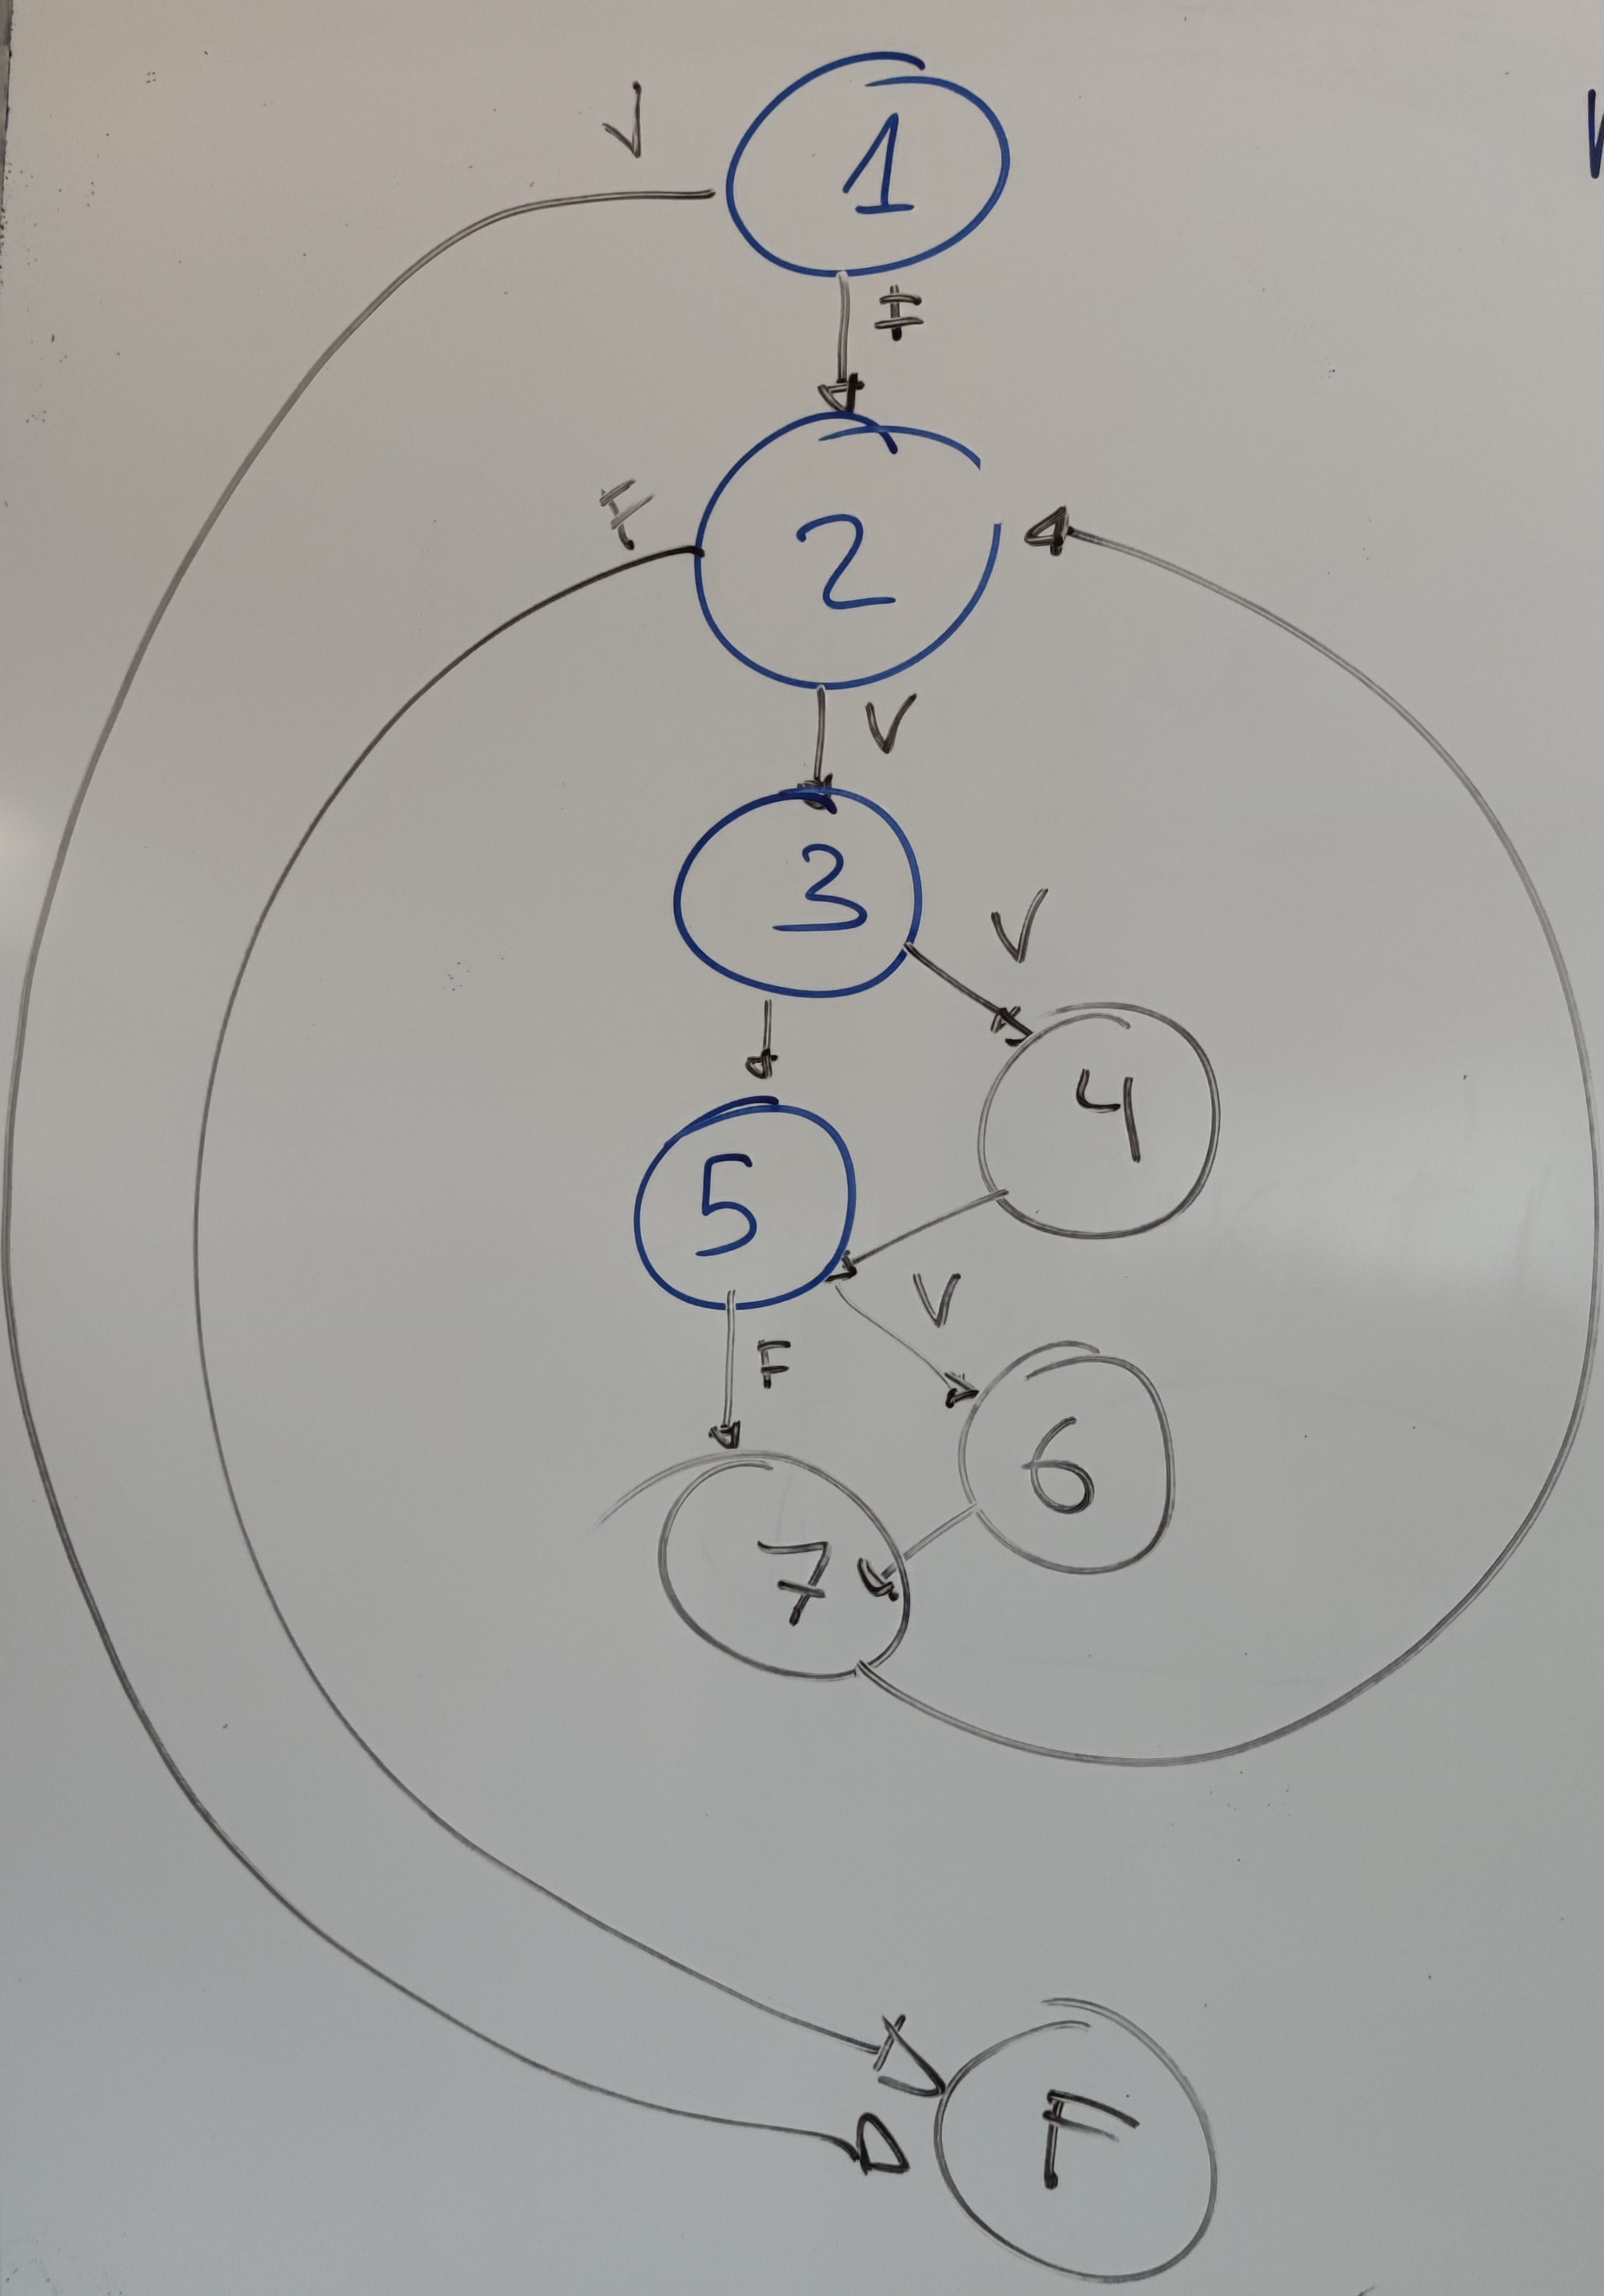 V
1
F
F
2
V
3
V
4
5
V
F
6
7
F